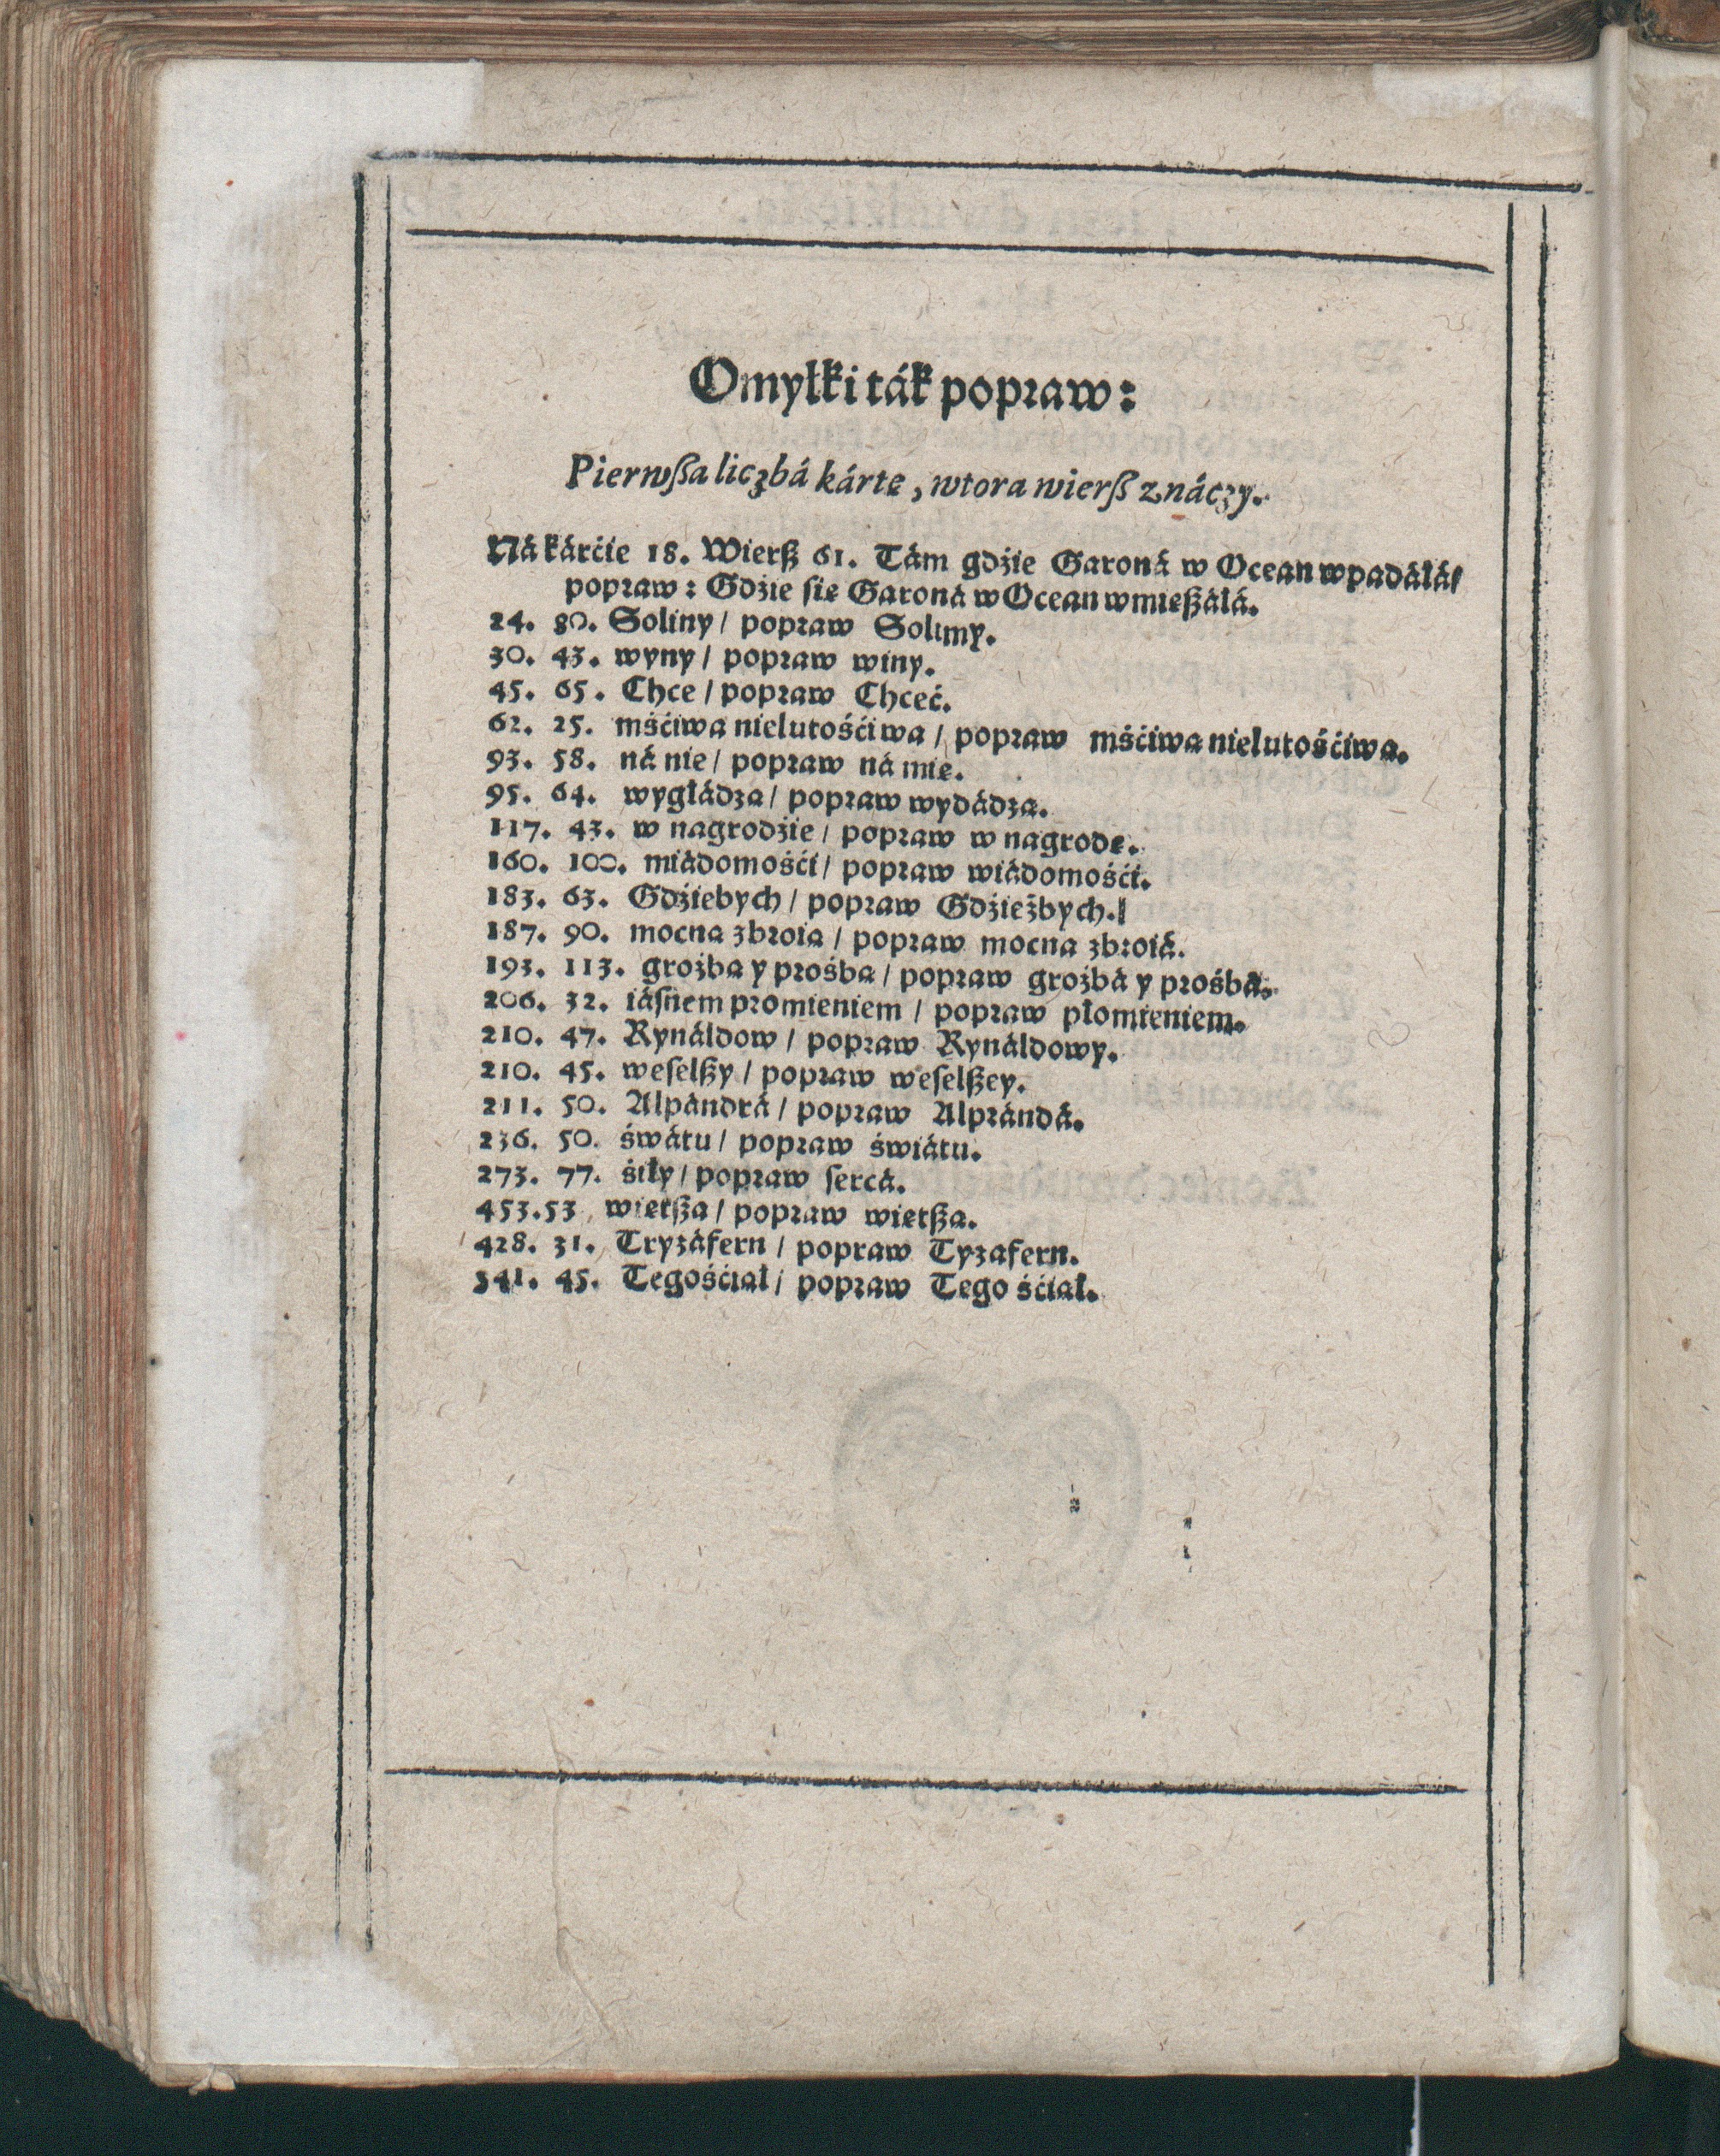 Omyłki ták popraw:
Pierwßa liczbá kárte, wtora wierß znáczy.
Ná kárćie 18. Wierß 61. Tám gdźie Garoná w Ocean wpadáłá/
popraw: Gdźie sie Garoná w Ocean wmießáłá.
24. 80. Soliny / popraw Solimy.
30. 43. wyny / popraw winy.
45. 65. Chce / popraw Chceć.
62. 25. mśćiwa nielutośćiwa / popraw mśćiwa nielutośćiwa.
93. 58. ná nie / popraw ná mie.
95. 64. wygłádza / popraw wydádza.
117. 43. w nagrodźie / popraw w nagrode.
160. 100. miádomośći / popraw wiádomośći.
183. 63. Gdźiebych / popraw Gdźieżbych.
187. 90. mocna zbroia / popraw mocna zbroiá.
193. 113. groźba y prośba / popraw groźbá y prośbá.
206. 32. iásnem promieniem / popraw płomieniem.
210. 47. Rynáldow / popraw Rynáldowy.
210. 45. weselßy / popraw weselßey.
211. 50. Alpándrá / popraw Alprándá.
236. 50. świátu / popraw świátu.
273. 77. śiły / popraw sercá.
453. 53 wietßa / popraw wietßa.
428. 31. Tryzáfern / popraw Tyzafern.
541. 45. Tegośćiał / popraw Tego śćiał.